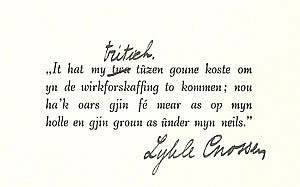 tritich.
„It hat my twa tûzen goune koste om
yn de wirkforskaffing to kommen; nou
ha'k oars gjin fé mear as op myn
holle en gjin groun as ûnder myn neils."
Lykle Cnossen